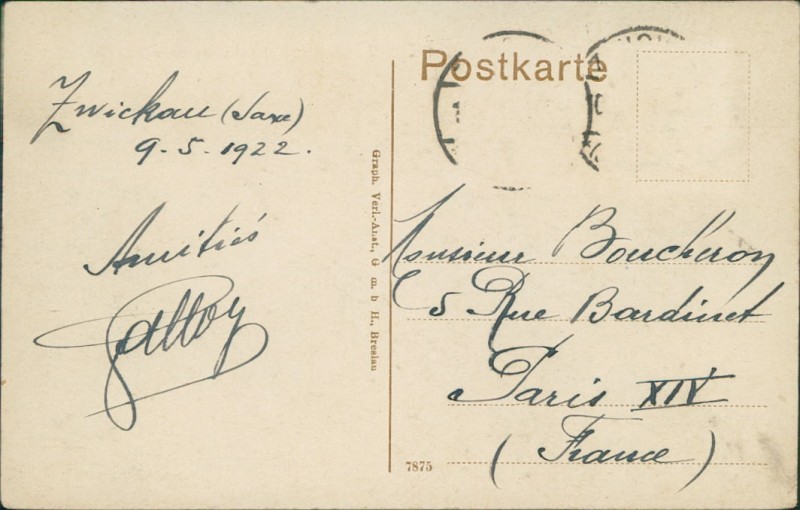 Postkarte
Zwickau (Saxe)
9-5-1922.
Amitiés
Graph. Verl.-Anst., G m. b H., Breslau
Monsieur Boucheron
5 Rue Bardinet
Paris XIV
(France)
7875